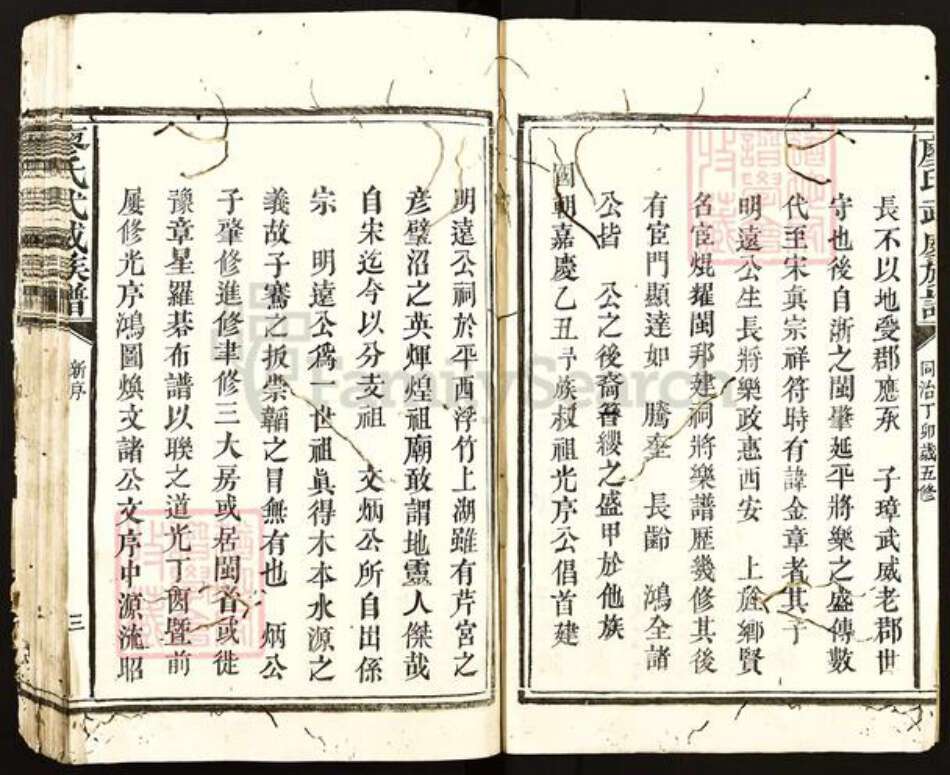 廖氏武威族譜
同治丁卯歲五修
長不以地受郡應永 子璋武威老郡世
守也後自浙之閩肇延平將樂之盛傳數
代至宋真宗祥符時有諱金章者其子
明遠公生長將樂政惠西安 上旌鄉賢
名宦焜耀閩邦建祠將樂譜歷幾修其後
有宦門顯達如 騰奎 長齡 鴻全諸
公皆 公之後裔簪纓之盛甲於他族
國朝嘉慶乙丑 族叔祖光序公倡首建
明遠公祠於平酉浮竹上湖雖有芹宮之
彥璧沼之英輝煌祖廟敢謂地靈人傑哉
自宋迄今以分支祖 文炳公所自出係
宗 明遠公爲一世祖眞得木本水源之
義故子騫之扳崇韜之冒無有也 炳公
子肇修進修聿修三大房或居閩省或徙
豫章星羅碁布譜以聯之道光丁酉曁前
屢修光序鴻圖煥文諸公文序中源流昭
廖氏武威族譜
新序
三